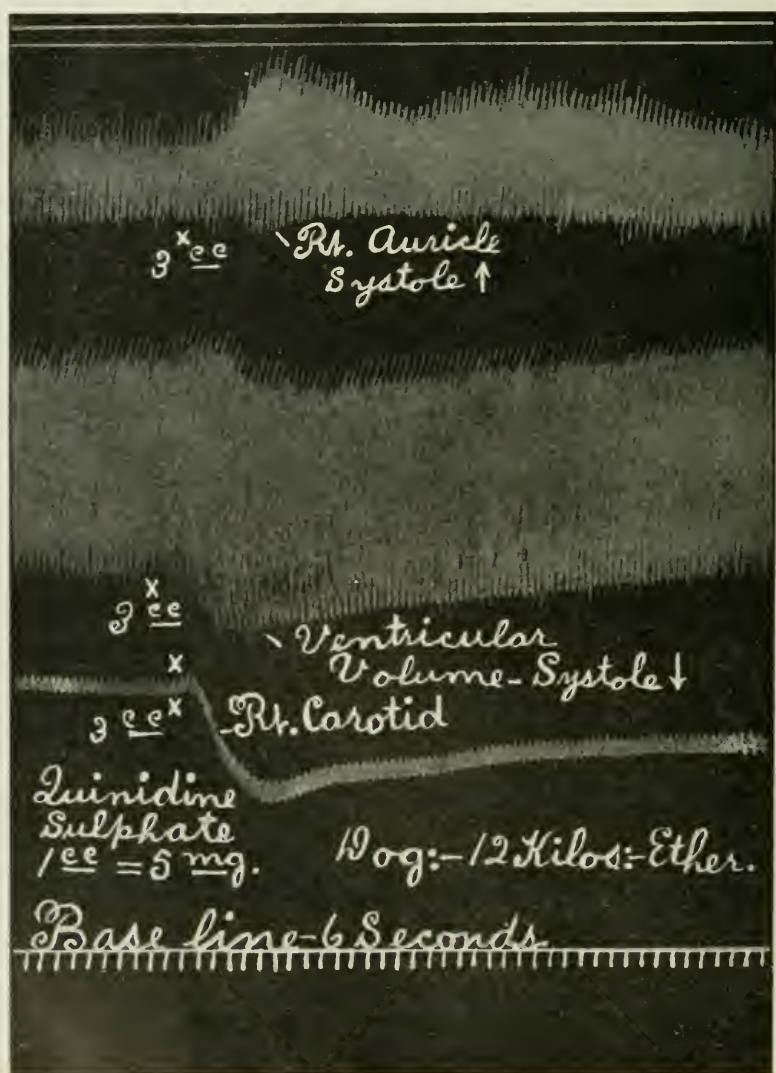 3 cc
x
Rt. Auricle
Systole ↑
x
3 cc
Ventricular
Volume-Systole ↓
x
3 cc x
Rt. Carotid
Quinidine
Sulphate
1 cc = 5 mg.
Dog:-12 Kilos:-Ether.
Base line-6 Seconds.